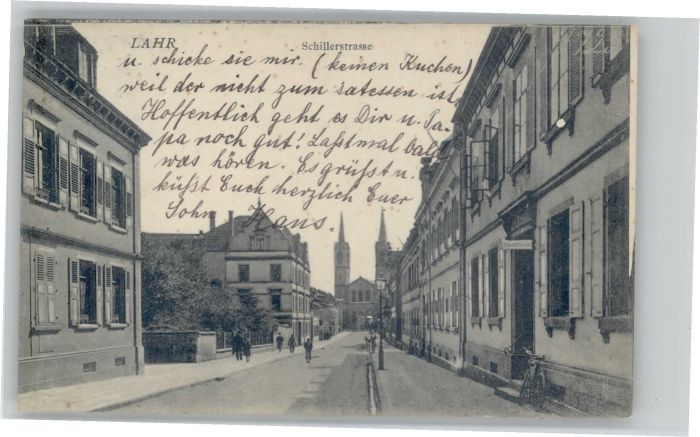 LAHR
Schillerstrasse
u. schicke sie mir. (keinen Kuchen)
weil der nicht zum satessen ist.
Hoffentlich geht es Dir u. Pa-
pa noch gut! Laßt mal bald
was hören. Es grüßt u.
küßt Euch herzlich Euer
Sohn Hans.